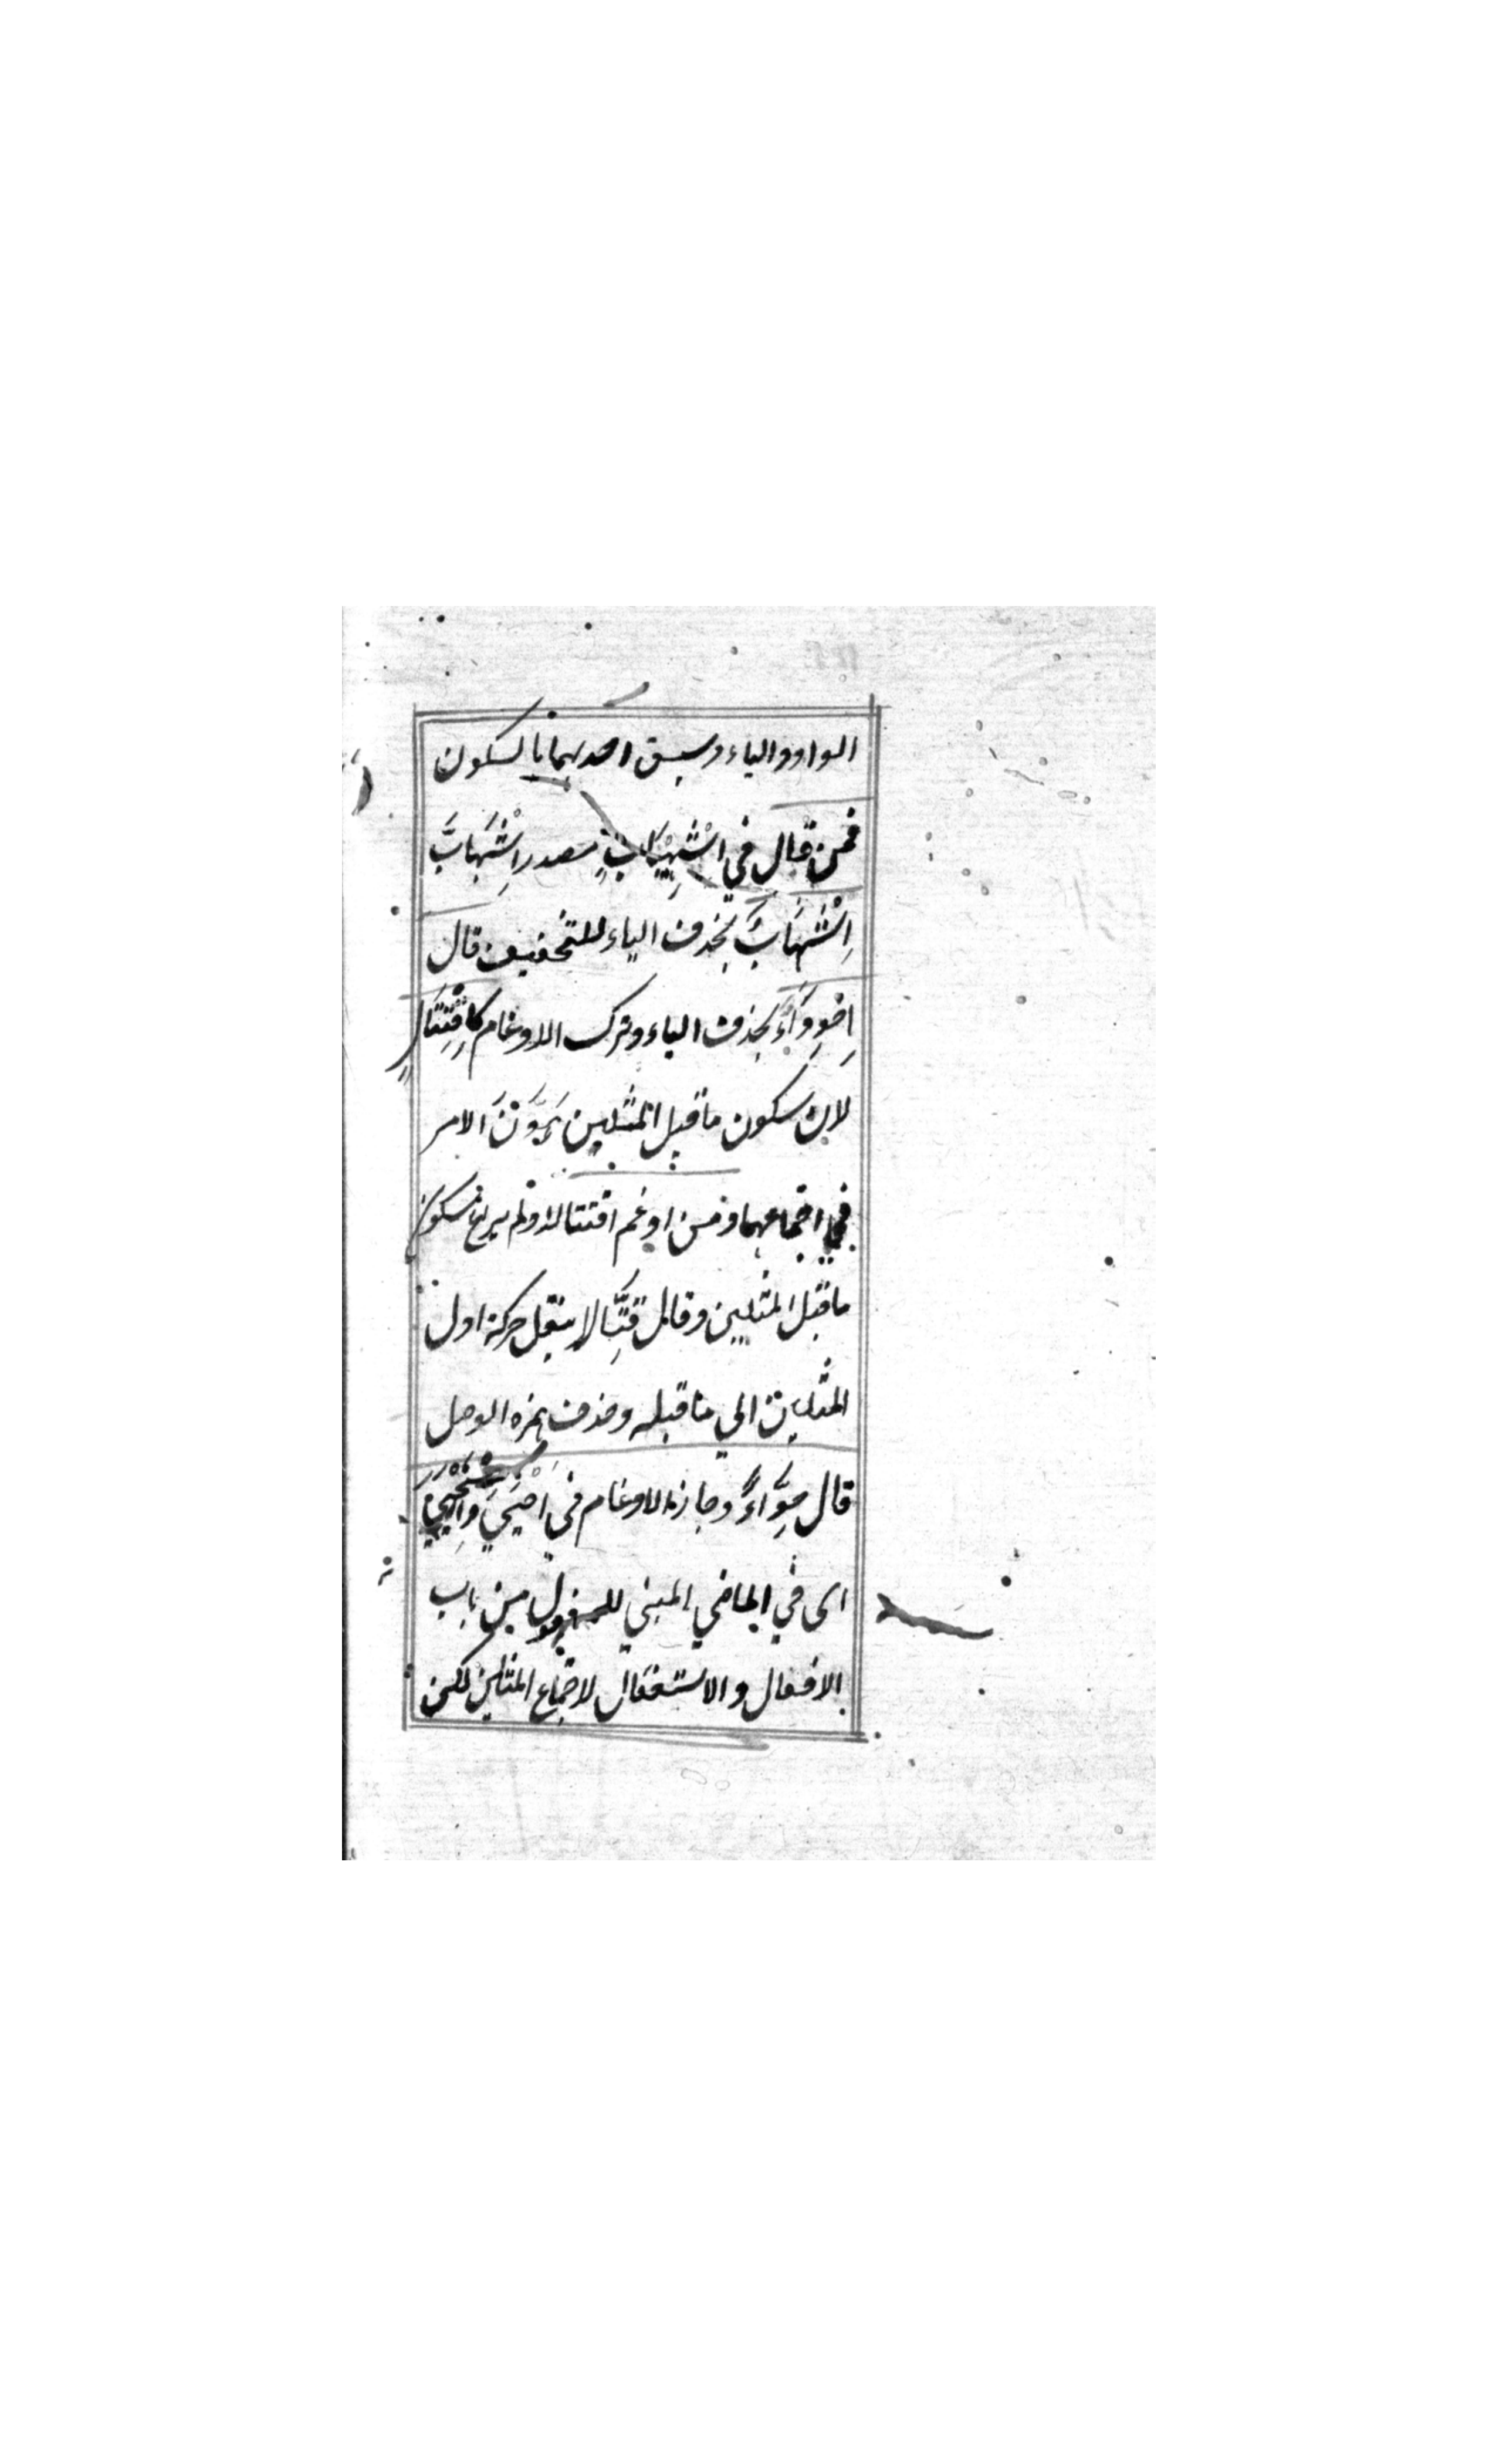 الواو والياء وسبق احدهما بالسكون
فمن قال في اشْهِيْبَابٍ مصدر اِشْهَابَّ
اِشْهِبَابٌ بحذف الياء للتخفيف قال
اِحْوِوَاءٌ بحذف الياء وترك الادغام كاِقْتِتَالٍ
لان سكون ماقبل المثلين يُهَوِّنُ الامر
في اجتماعهما ومن ادغم اقتتالا ولم يراع سكون
ماقبل المثلين وقال قِتَّالا بنقل حركة اول
المثلين الي ماقبله وحذف همزه الوصل
قال حِوَّاءٌ وجاز الادغام في اُحْيِيَ وَاُسْتُحْيِيَ
اى في الماضي المبني للمفعول من باب
الافعال والاستفعال لاجتماع المثلين لكن